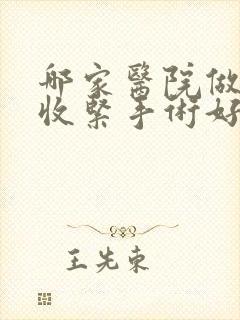 哪家醫院做
收緊手術好
王先東